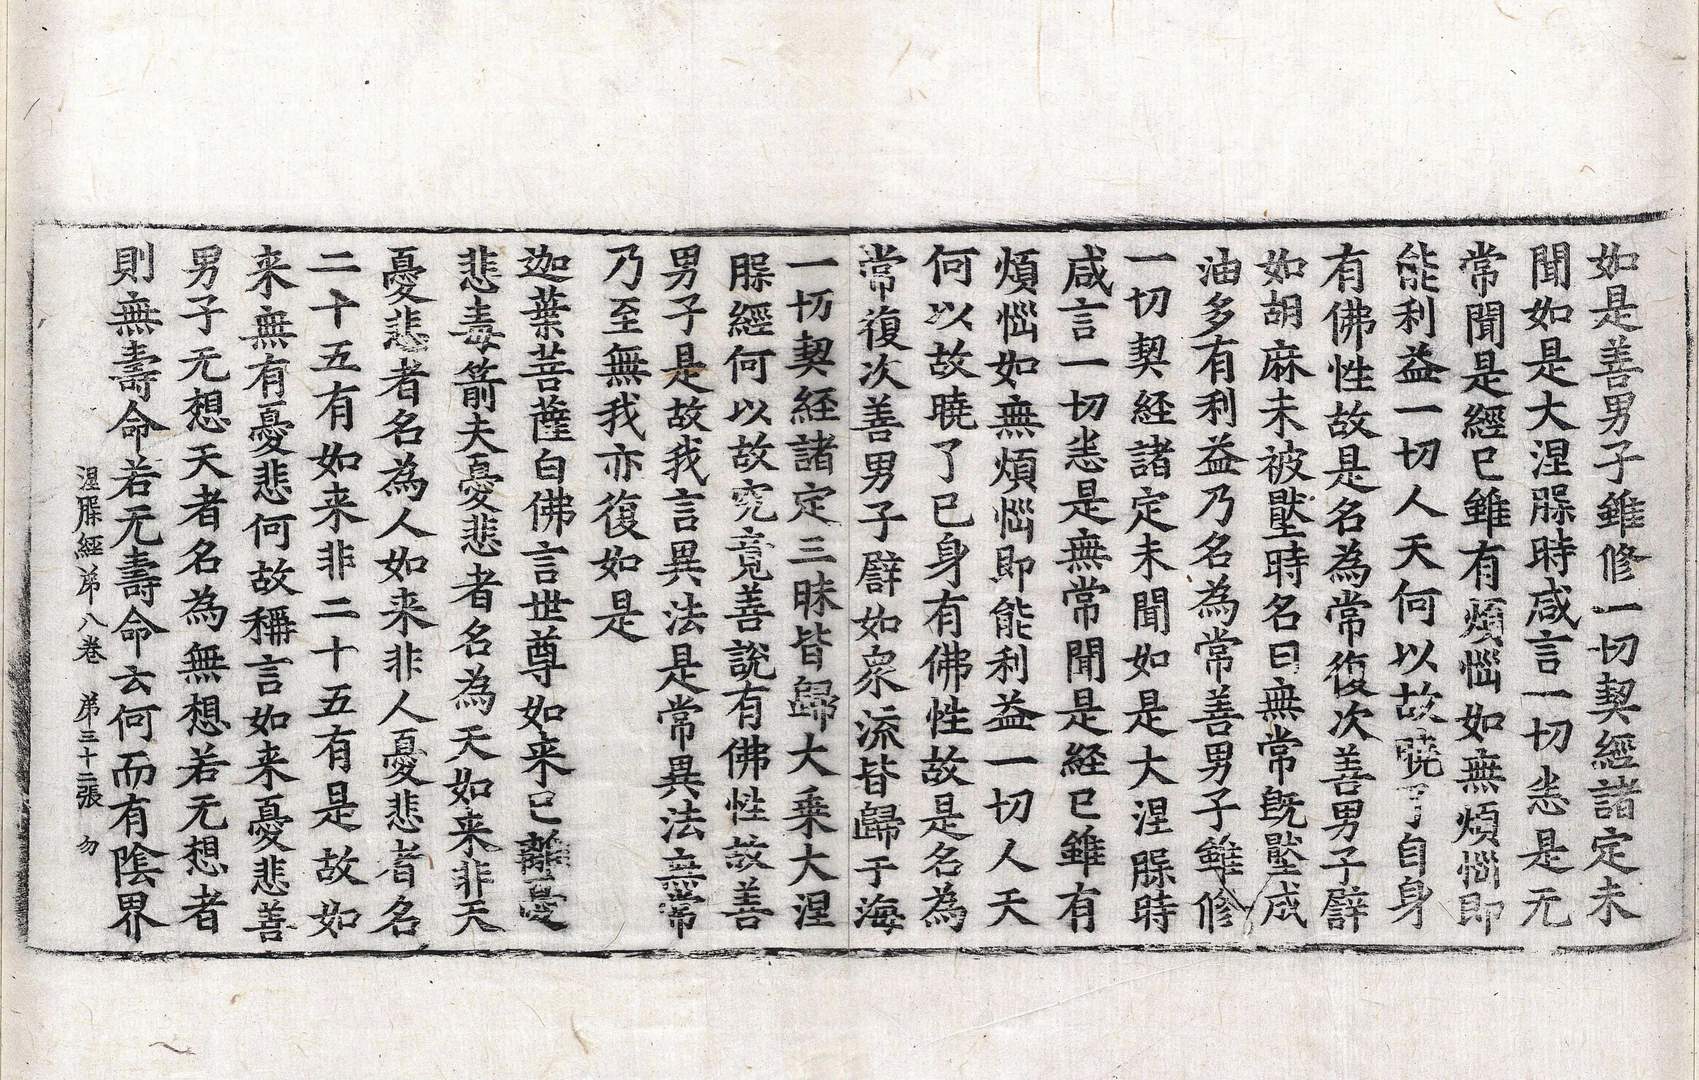 如是善男子雖修一切契經諸定未
聞如是大涅槃時咸言一切悉是无
常聞是經已雖有煩惱如無煩惱即
能利益一切人天何以故曉了自身
有佛性故是名為常復次善男子譬
如胡麻未被壓時名曰無常旣壓成
油多有利益乃名為常善男子雖修
一切契経諸定未聞如是大涅槃時
咸言一切悉是無常聞是経已雖有
煩惱如無煩惱即能利益一切人天
何以故曉了已身有佛性故是名為
常復次善男子譬如衆流皆歸于海
一切契経諸定三昧皆歸大乗大涅
槃經何以故究竟善說有佛性故善
男子是故我言異法是常異法無常
乃至無我亦復如是
迦葉菩薩白佛言世尊如来已離憂
悲毒箭夫憂悲者名為天如来非天
憂悲者名為人如来非人憂悲者名
二十五有如来非二十五有是故如
来無有憂悲何故稱言如来憂悲善
男子无想天者名為無想若无想者
則無壽命若无壽命云何而有陰界
涅槃經第八卷 第三十二張 勿